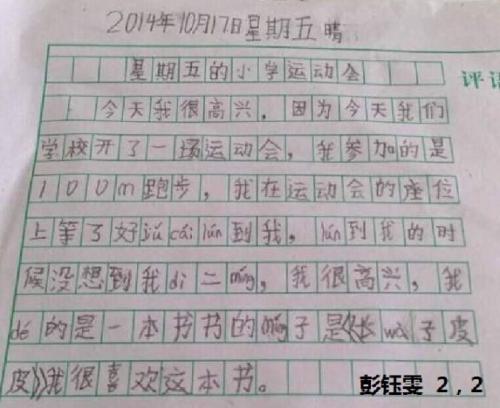 2014年10月17日星期五晴
星期五的小学运动会
评语
今天我很高兴，因为今天我们
学校开了一场运动会，我参加的是
100m跑步，我在运动会的座位
上等了好jiǔ cái lún到我，lún到我的时
候没想到我dì二míng，我很高兴，我
dé的是一本书书的míng子是《长wà子皮
皮》我很喜欢这本书。
彭钰雯 2，2